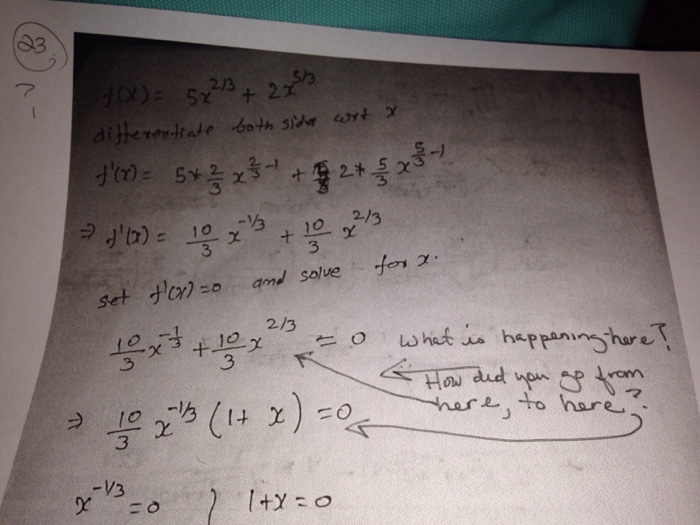 23;
?
f(x) = 5x^2/3 + 2x^5/3
differentiate both side wrt x
f'(x) = 5 * 2/3 x^2/3-1 + 2 * 5/3 x^5/3-1
⇒ f'(x) = 10/3 x^-1/3 + 10/3 x^2/3
set f'(x)=0 and solve for x.
10/3 x^-1/3 + 10/3 x^2/3 = 0 What is happening here?
How did you go from
here, to here?
⇒ 10/3 x^-1/3 (1 + x) = 0
x^-1/3 = 0 ) 1+x = 0